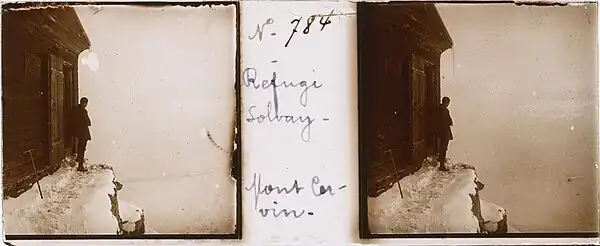 N. 784
Refugi
Solvay -
Mont Cer-
vin -